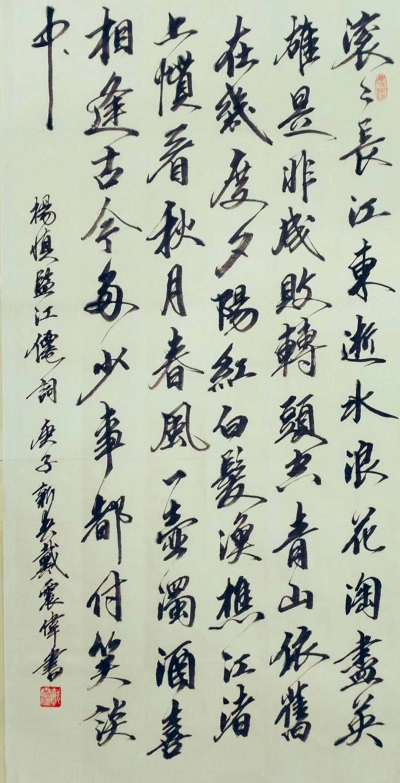 滚〻長江東逝水浪花淘盡英
雄是非成敗轉頭空青山依舊
在幾度夕陽紅白髮漁樵江渚
上慣看秋月春風一壺濁酒喜
相逢古今多少事都付笑談
中
楊慎臨江僊詞庚子新春戴震偉書